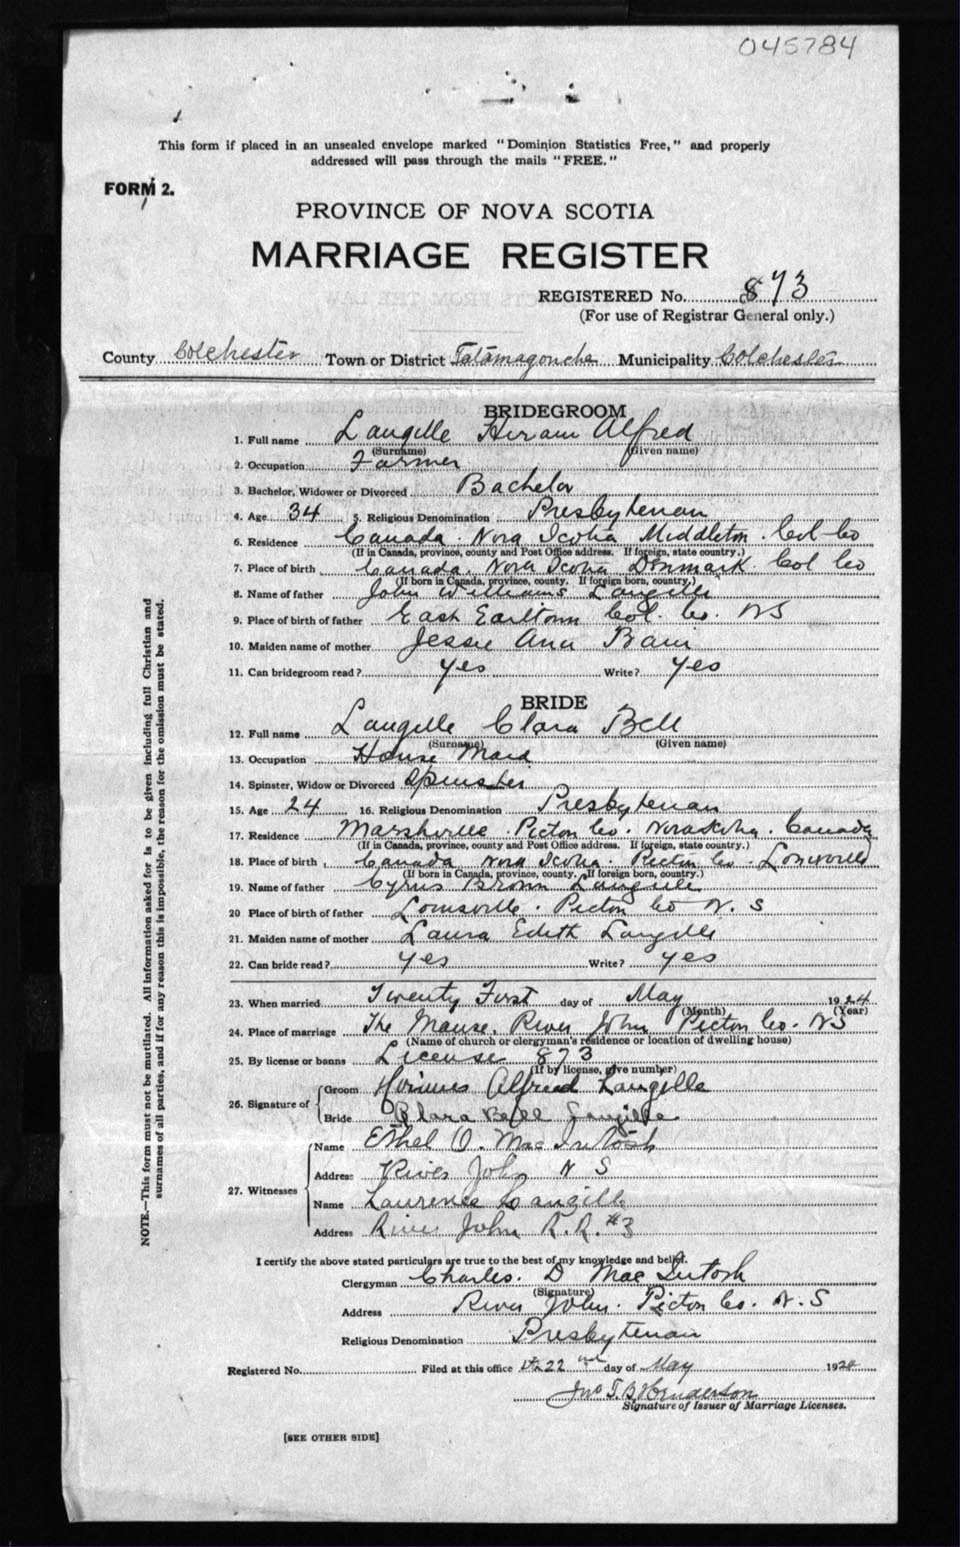 045784
This form if placed in an unsealed envelope marked "Dominion Statistics Free," and properly
addressed will pass through the mails "FREE."
FORM 2.
PROVINCE OF NOVA SCOTIA
MARRIAGE REGISTER
REGISTERED No. 873
(For use of Registrar General only.)
County Colchester Town or District Tatamagouche Municipality Colchester
BRIDEGROOM
1. Full name Langille Hiram Alfred
(Surname) (Given name)
2. Occupation Farmer
3. Bachelor, Widower or Divorced Bachelor
4. Age 34 5. Religious Denomination Presbyterian
6. Residence Canada. Nova Scotia Middleton. Col Co
(If in Canada, province, county and Post Office address. If foreign, state country.)
7. Place of birth Canada. Nova Scotia Denmark. Col Co
(If born in Canada, province, county. If foreign born, country.)
8. Name of father John Williams Langille
9. Place of birth of father East Earltown Col. Co. NS
10. Maiden name of mother Jessie Ann Bain
11. Can bridegroom read? yes Write? yes
BRIDE
12. Full name Langille Clara Bell
(Surname) (Given name)
13. Occupation House Maid
14. Spinster, Widow or Divorced Spinster
15. Age 24 16. Religious Denomination Presbyterian
17. Residence Marshville. Picton Co. Nova Scotia. Canada
(If in Canada, province, county and Post Office address. If foreign, state country.)
18. Place of birth Canada Nova Scotia. Picton Co.
(If born in Canada, province, county. If foreign born, country.)
19. Name of father Cyrus Brown Langille
20 Place of birth of father Louisville. Picton Co N. S
21. Maiden name of mother Laura Edith Langille
22. Can bride read? yes Write? yes
23. When married Twenty First day of May 1924
(Month) (Year)
24. Place of marriage The Manse, River John Picton Co. NS
(Name of church or clergyman's residence or location of dwelling house)
25. By license or banns License 873
(If by license, give number)
26. Signature of Groom Alfred Langille
Bride Clara Bell Langille
27. Witnesses Name Ethel O. MacIntosh
Address River John N S
Name Laurence Langille
Address River John R.R. #3
I certify the above stated particulars are true to the best of my knowledge and belief.
Clergyman Charles. D MacIntosh
(Signature)
Address River John. Picton Co. N. S
Religious Denomination Presbyterian
Registered No. Filed at this office 22nd day of May 1924
Henderson
Signature of Issuer of Marriage Licenses.
[SEE OTHER SIDE]
NOTE.—This form must not be mutilated. All information asked for is to be given including full Christian and
surnames of all parties, and if for any reason this is impossible, the reason for the omission must be stated.